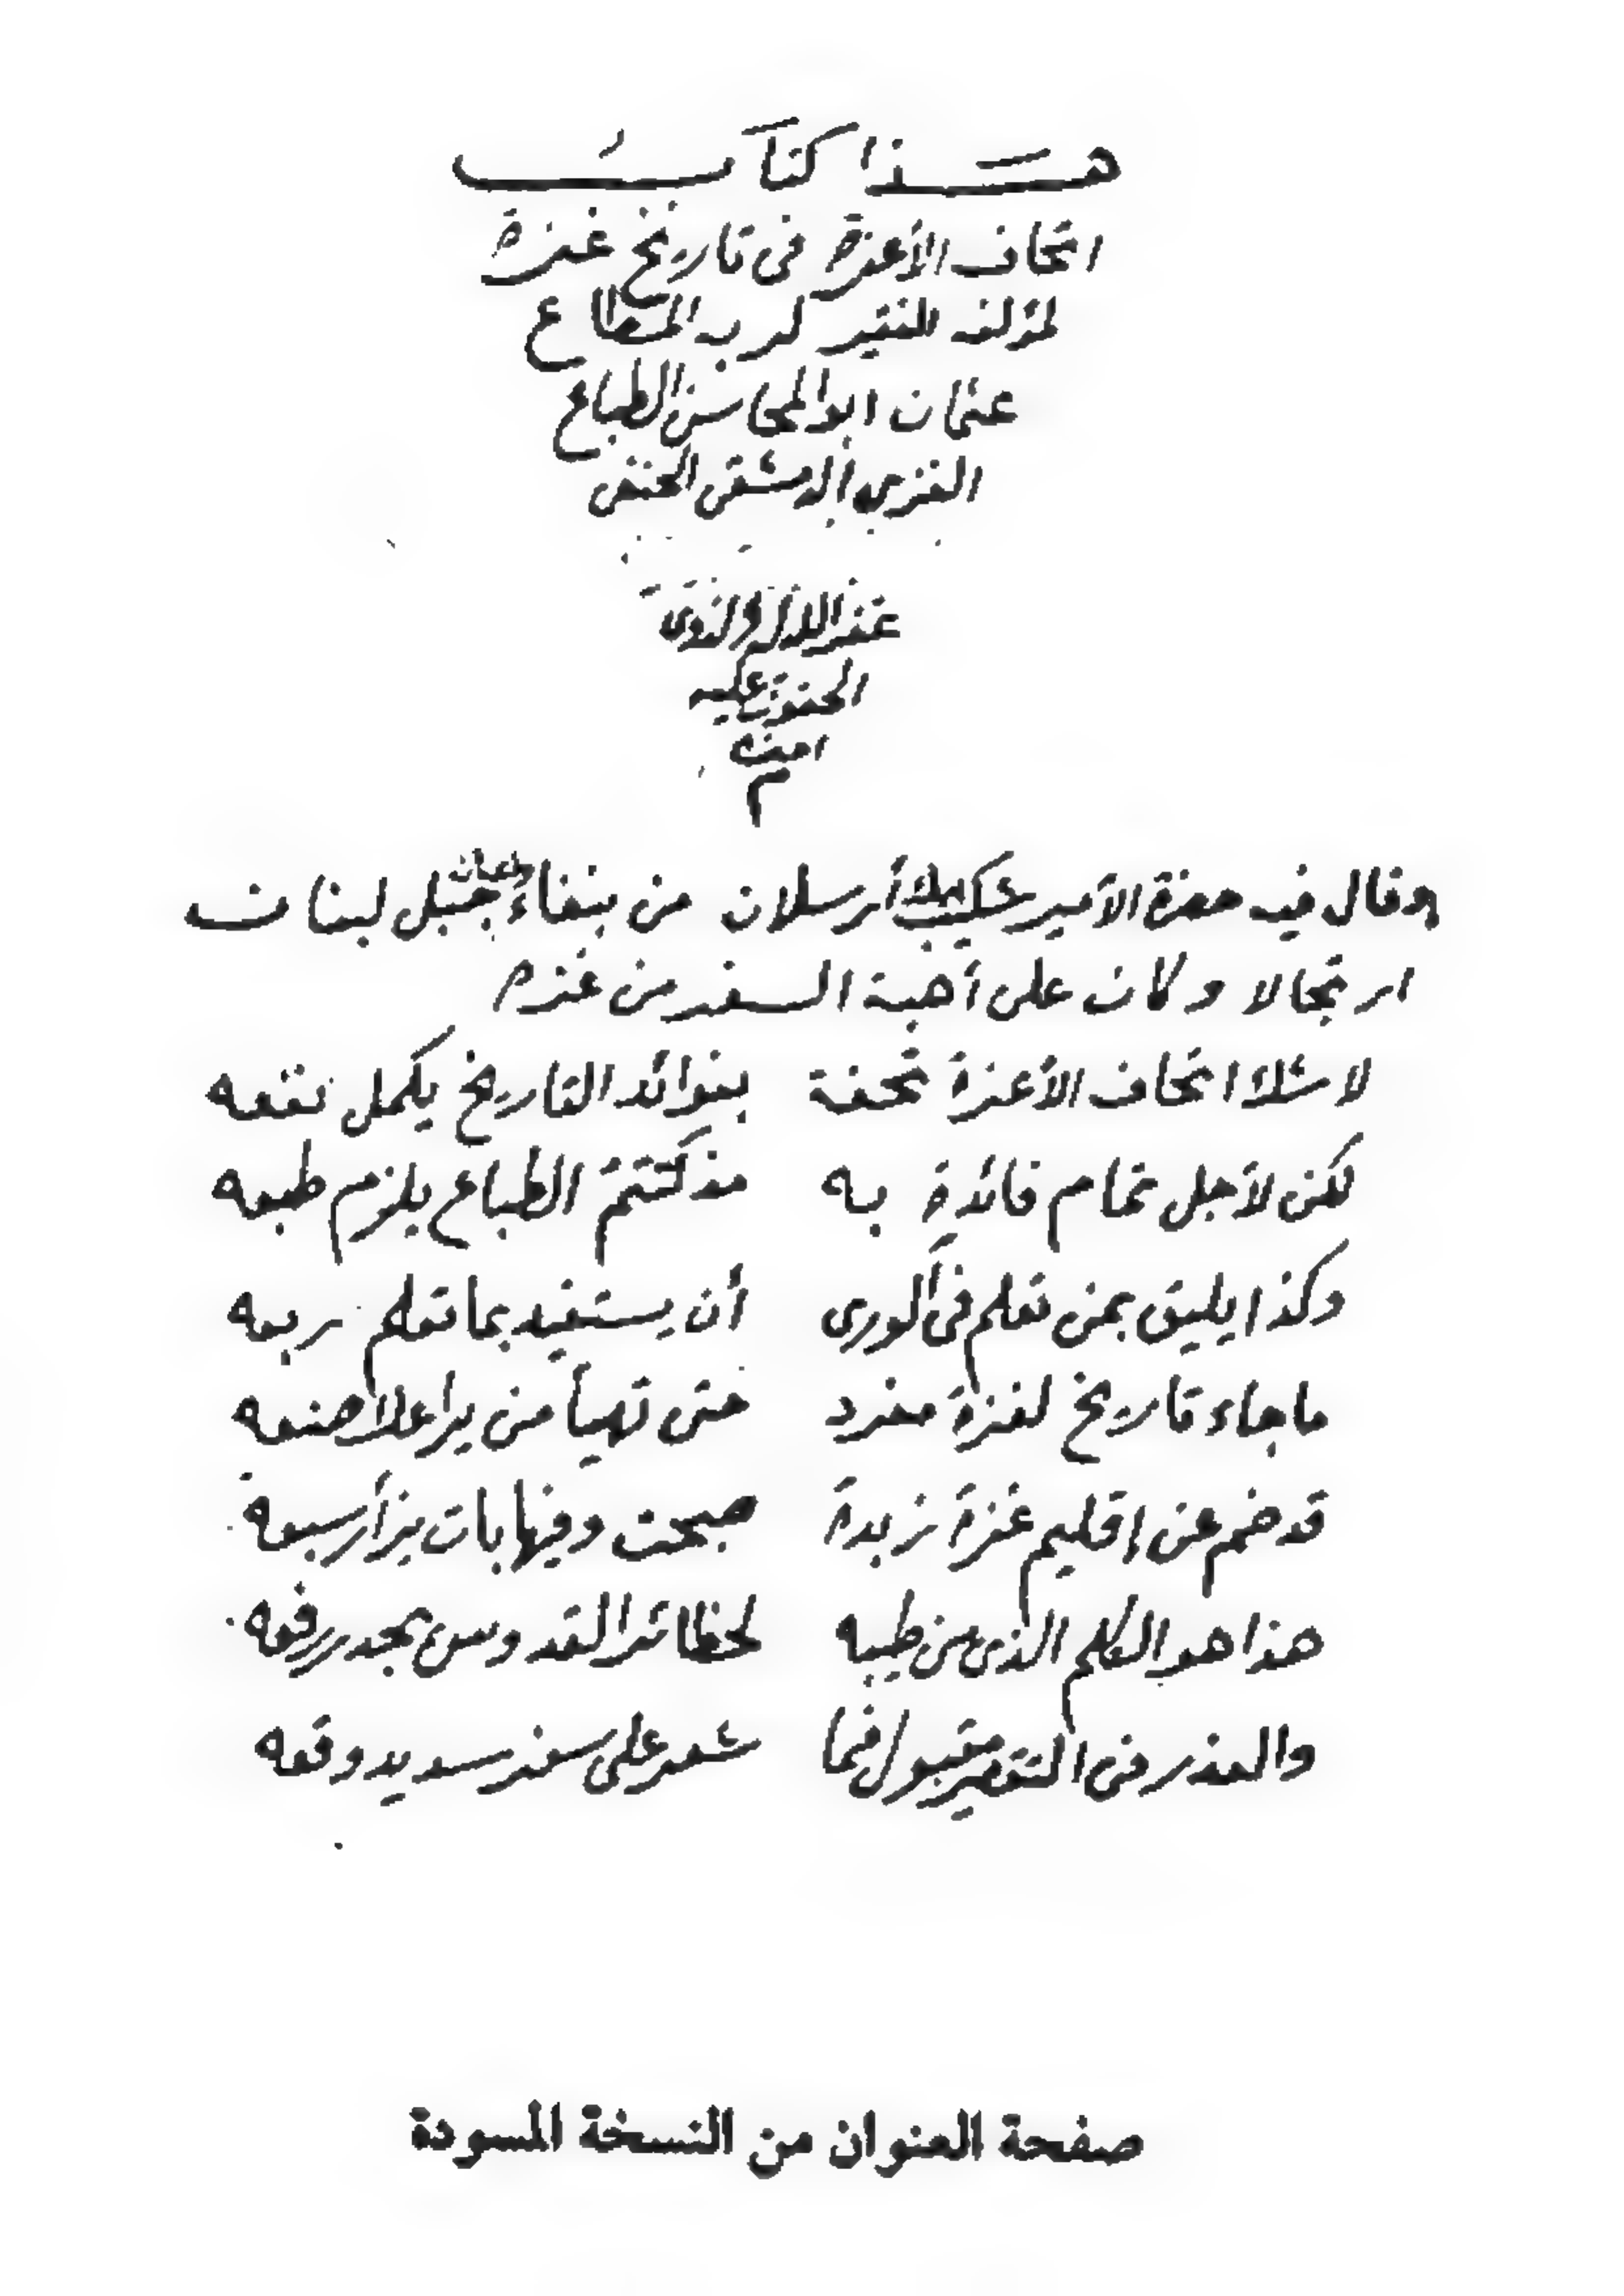 هذا كتاب
اتحاف الأعزة في تاريخ غزة
لمؤلفه الفقير لربه المطاع
عثمان ابو المحاسن الطباع
الغزي الدمشقي الحنفي
غفر الله له ولذوي
الحقوق عليه
امين
م
وقال فيه حضرة الأمير شكيب أرسلان من بلغاء جبل لبنان
ارتجالا وكان على أهبة السفر من غزه
لا شك اتحاف الأعزة تحفة بفوائد التاريخ يكمل نفعه
لكن لأجل تمام فائدة به الطباع يلزم طبعه
وكذا يليق بمن تعلم في الورى أن يستفيد بما تعلم ربعه
ما جاء تاريخ لغزة مفرد حتى تهيأ من صنعه
قد ضم عن اقليم غزة زبدة صحت وفيها بات
هذا هو الكلم الذي من طيبه لحظائر القدوس يجدر رفعه
والعذر في التقصير مقبول فما شعر على سفر سديد وقعه
صفحة العنوان من النسخة المسودة